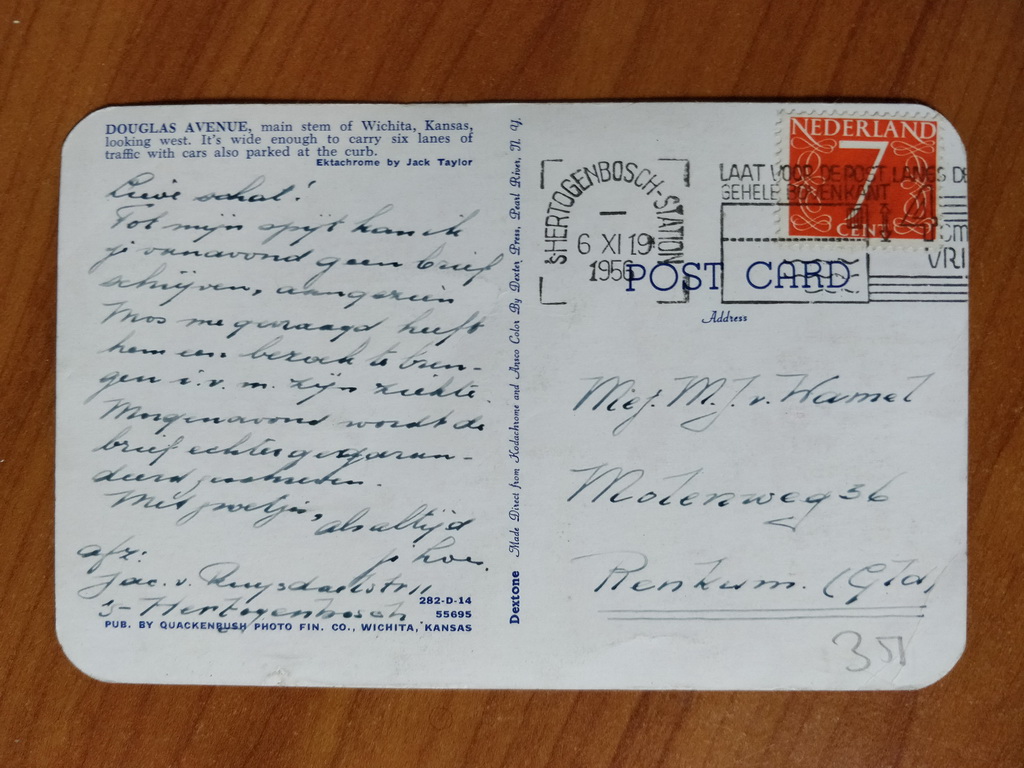 DOUGLAS AVENUE, main stem of Wichita, Kansas,
looking west. It's wide enough to carry six lanes of
traffic with cars also parked at the curb.
Ektachrome by Jack Taylor
Lieve schat!
Tot mijn spijt kan ik
je vanavond geen brief
schrijven, aangezien
Mos me gevraagd heeft
hem een bezoek te bren-
gen i.v.m. zijn ziekte.
Morgenavond wordt de
brief echter gegaran-
deerd geschreven.
Met groetjes,
als altijd
afz:
Jac. v. Ruysdaelstr 11
's-Hertogenbosch
282-D-14
55695
PUB. BY QUACKENBUSH PHOTO FIN. CO., WICHITA, KANSAS
Dextone Made Direct from Kodachrome and Ansco Color By Dexter Press, Pearl River, N. Y.
NEDERLAND
7
CENT
'S-HERTOGENBOSCH-STATION
6 XI 19
1956
LAAT VOOR DE POST LANGS DE
GEHELE BOVENKANT
VRI
POST CARD
Address
Mej. M. J. v. Hamel
Molenweg 36
Renkum. (Gld)
351